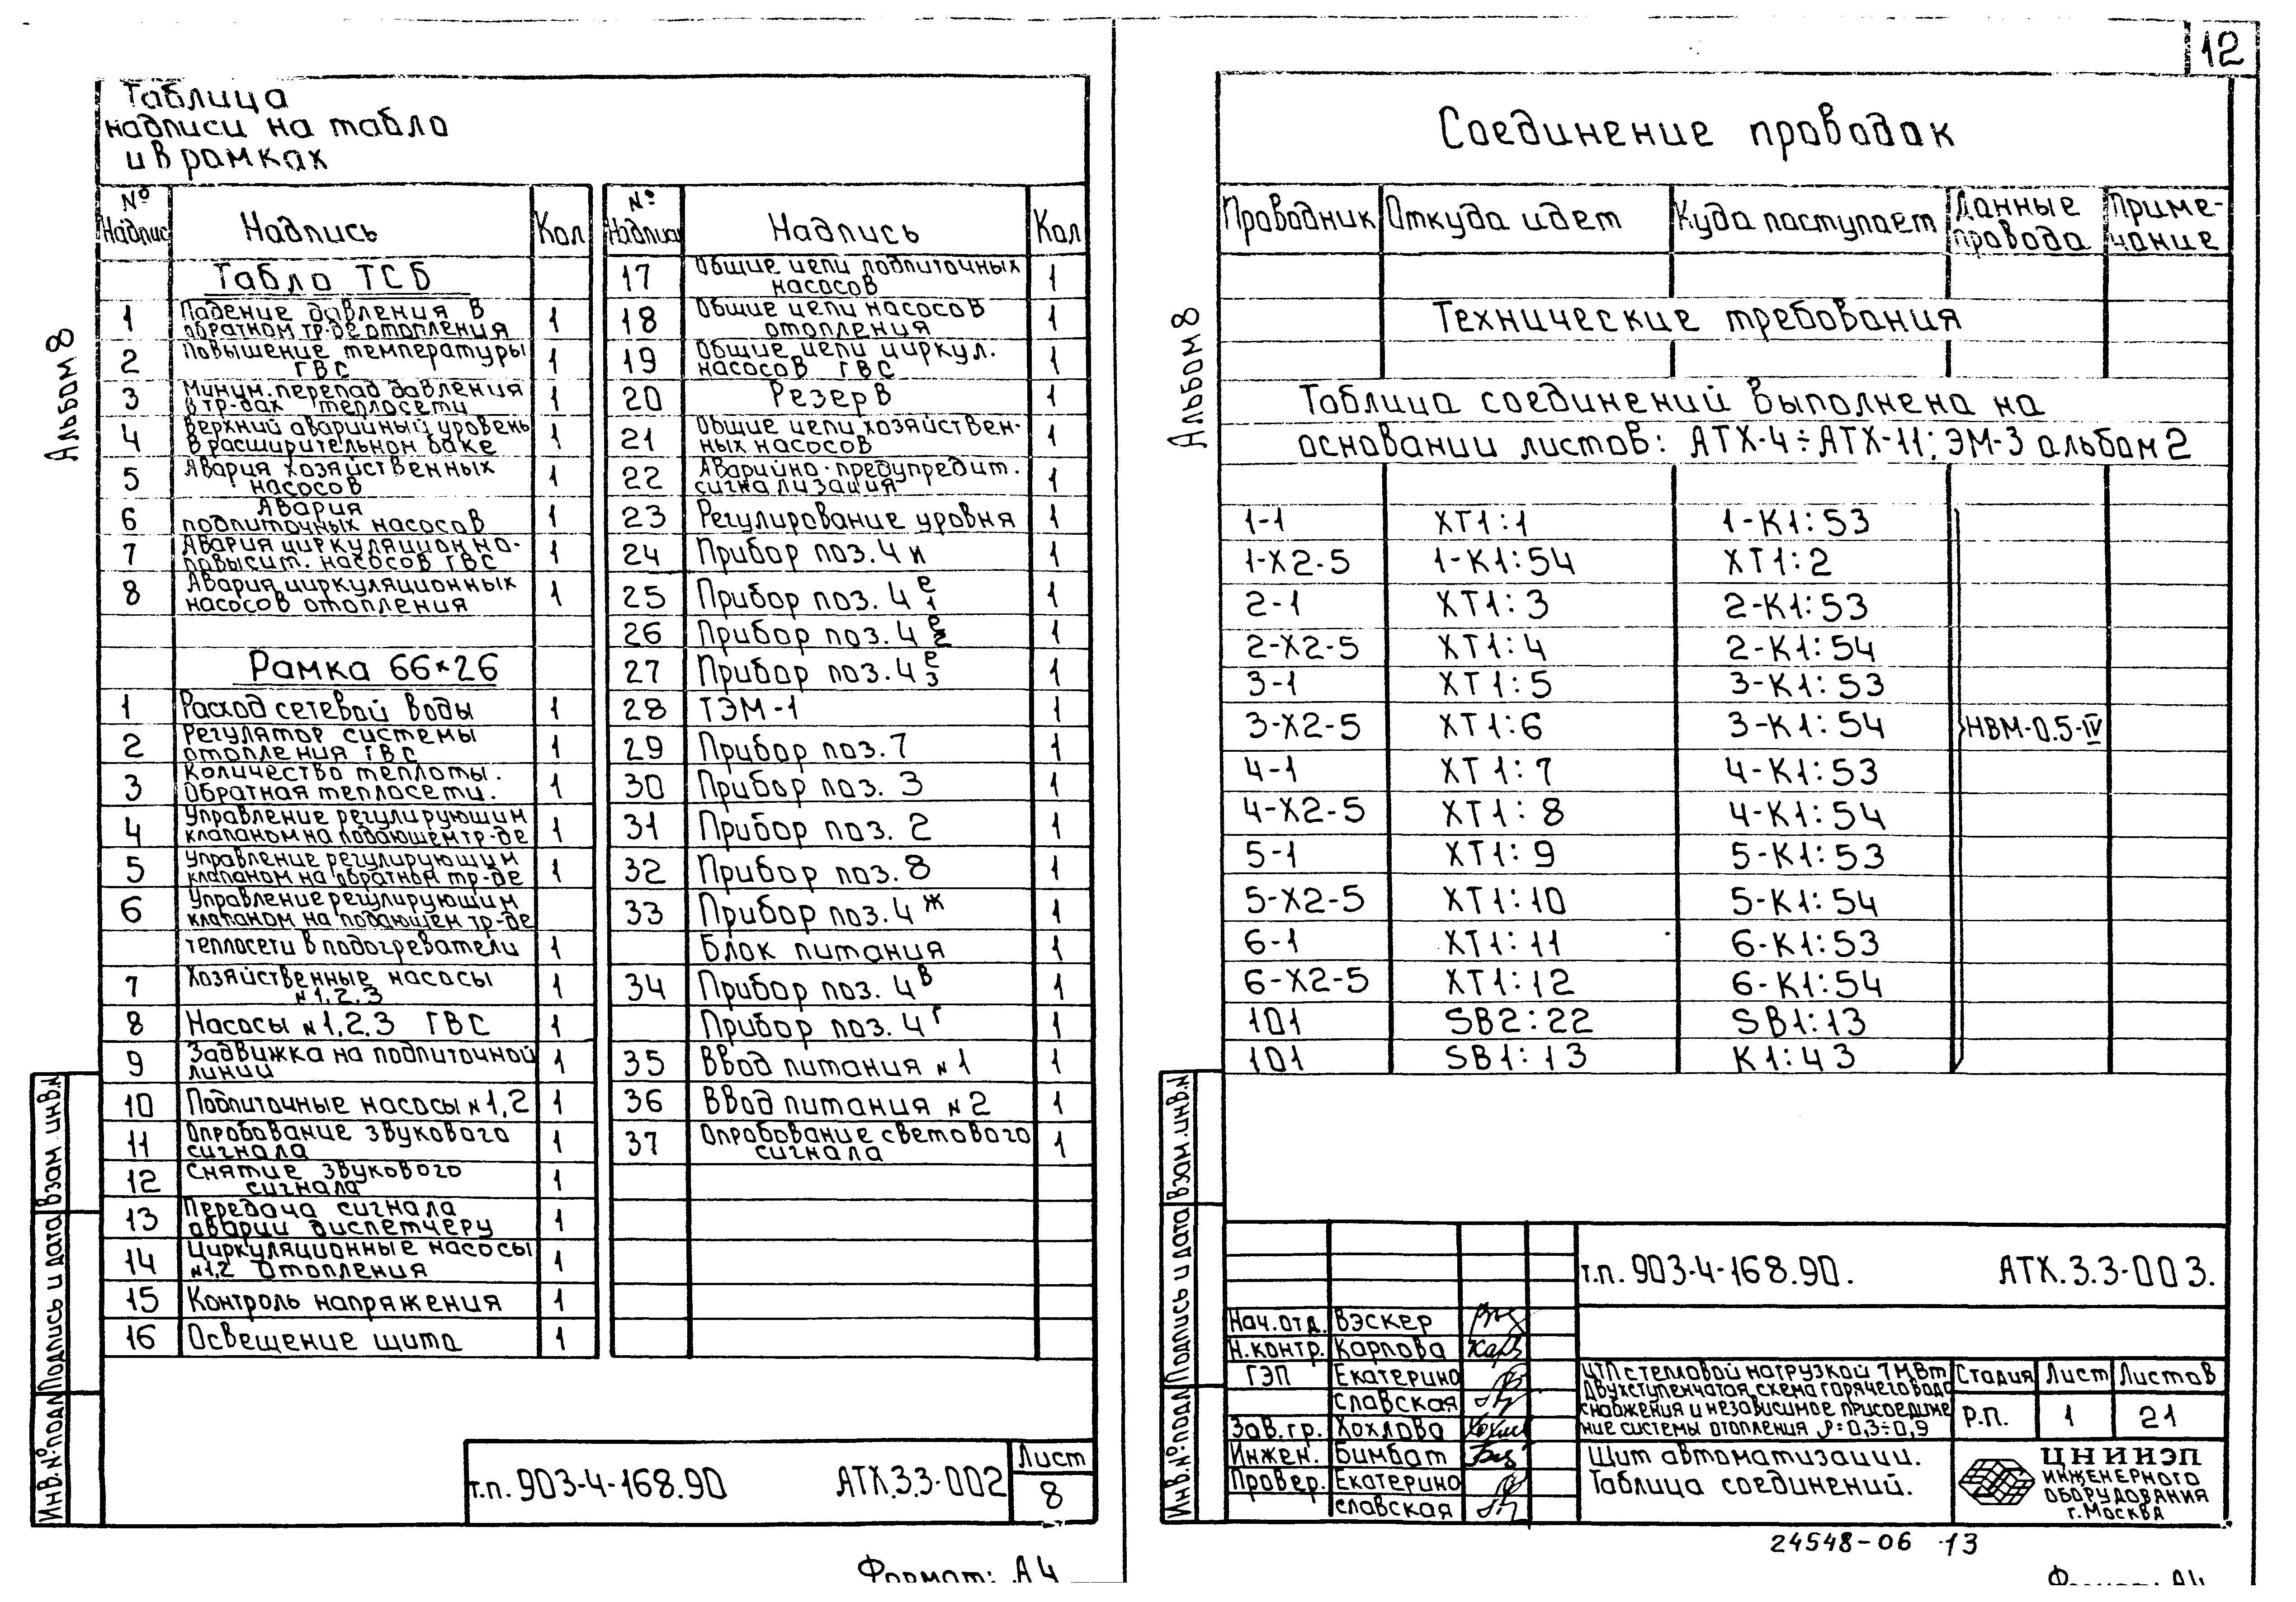 12
Таблица
надписи на табло
и в рамках
Альбом 8
№ Надпис Надпись Кол
Табло ТСБ
1 Падение давления в обратном тр-де отопления 1
2 Повышение температуры ГВС 1
3 Миним. перепад давления в тр-дах теплосети 1
4 Верхний аварийный уровень в расширительном баке 1
5 Авария хозяйственных насосов 1
6 Авария подпиточных насосов 1
7 Авария циркуляционно-повысит. насосов ГВС 1
8 Авария циркуляционных насосов отопления 1
Рамка 66×26
1 Расход сетевой воды 1
2 Регулятор системы отопления ГВС 1
3 Количество теплоты. Обратная теплосети. 1
4 Управление регулирующим клапаном на подающем тр-де 1
5 Управление регулирующим клапаном на обратном тр-де 1
6 Управление регулирующим клапаном на подающем тр-де
теплосети в подогреватели 1
7 Хозяйственные насосы №1,2,3 1
8 Насосы №1,2,3 ГВС 1
9 Задвижка на подпиточной линии 1
10 Подпиточные насосы №1,2 1
11 Опробование звукового сигнала 1
12 Снятие звукового сигнала 1
13 Передача сигнала аварии диспетчеру 1
14 Циркуляционные насосы №1,2 отопления 1
15 Контроль напряжения 1
16 Освещение щита 1
№ Надписи Надпись Кол
17 Общие цепи подпиточных насосов 1
18 Общие цепи насосов отопления 1
19 Общие цепи циркул. насосов ГВС 1
20 Резерв 1
21 Общие цепи хозяйствен-ных насосов 1
22 Аварийно-предупредит. сигнализация 1
23 Регулирование уровня 1
24 Прибор поз. 4и 1
25 Прибор поз. 4 е 1 1
26 Прибор поз. 4 е 2 1
27 Прибор поз. 4 е 3 1
28 ТЭМ-1 1
29 Прибор поз. 7 1
30 Прибор поз. 3 1
31 Прибор поз. 2 1
32 Прибор поз. 8 1
33 Прибор поз. 4 ж 1
Блок питания 1
34 Прибор поз. 4 в 1
Прибор поз. 4 г 1
35 Ввод питания №1 1
36 Ввод питания №2 1
37 Опробование светового сигнала 1
Взам. инв.№
Подпись и дата
Инв.№ подл
т.п. 903-4-168.90 АТХ.3.3-002
Лист
8
Формат: А4
Соединение проводок
Альбом 8
Проводник Откуда идет Куда поступает Данные провода Приме-чание
Технические требования
Таблица соединений выполнена на
основании листов: АТХ-4÷АТХ-11; ЭМ-3 альбом 2
1-1 ХТ1:1 1-К1:53
1-Х2-5 1-К1:54 ХТ1:2
2-1 ХТ1:3 2-К1:53
2-Х2-5 ХТ1:4 2-К1:54
3-1 ХТ1:5 3-К1:53
3-Х2-5 ХТ1:6 3-К1:54 НВМ-0.5-IV
4-1 ХТ1:7 4-К1:53
4-Х2-5 ХТ1:8 4-К1:54
5-1 ХТ1:9 5-К1:53
5-Х2-5 ХТ1:10 5-К1:54
6-1 ХТ1:11 6-К1:53
6-Х2-5 ХТ1:12 6-К1:54
101 SB2:22 SB1:13
101 SB1:13 К1:43
Взам.инв.№
Подпись и дата
Инв.№ подл
т.п. 903-4-168.90. АТХ.3.3-003.
Нач.отд. Вэскер
Н.контр. Карпова
ГЭП Екатерино
славская
Зав.гр. Хохлова
Инжен. Бимбат
Провер. Екатерино
славская
ЦТП с тепловой нагрузкой 7 МВт
Двухступенчатая схема горячего водо
снабжения и независимое присоедине
ние системы отопления ρ=0,3÷0,9
Стадия Лист Листов
Р.П. 1 21
Щит автоматизации.
Таблица соединений.
ЦНИИЭП
ИНЖЕНЕРНОГО
ОБОРУДОВАНИЯ
г. Москва
24548-06 13